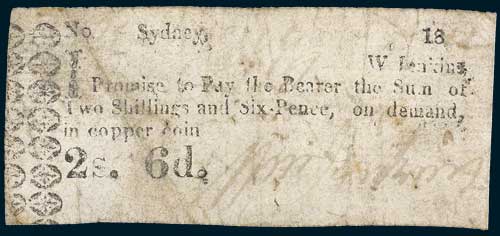 No. Sydney, 18
W Jenkins,
I Promise to Pay the Bearer the Sum of
Two Shillings and Six-Pence, on demand,
in copper coin
2s. 6d.